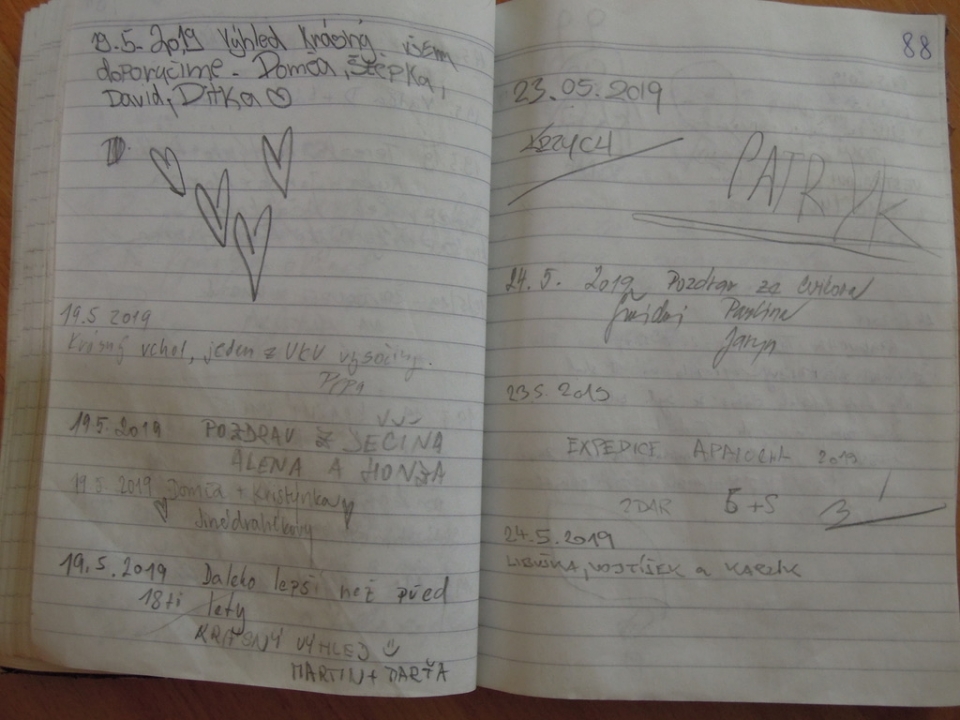 19.5.2019 Výhled krásný. všem
doporučíme. Domča, Štěpka,
David, Ditka ♡
D.
19.5 2019
Krásný vchol, jeden z VKV vysočiny.
Pepa
19.5.2019 POZDRAV Z JEČINA
ALENA A HONZA
19.5 2019 Domča + Kristýnka
19.5.2019 Daleko lepší než před
18ti lety
KRÁSNÝ VÝHLED
MARTIN + DARŤA
88
23.05.2019
PATRYK
24.5. 2019 Pozdrav za
Pavlína
23.5.2019
EXPEDICE 2019
ZDAR S+S
24.5.2019
LIBUŠKA, VOJTÍŠEK a